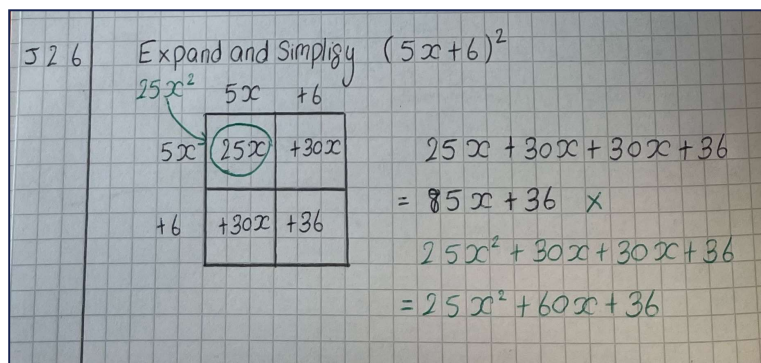 J26 Expand and Simplify (5x+6)²
25x² 5x +6
5x 25x +30x
+6 +30x +36
25x + 30x + 30x + 36
= 85x + 36 ×
25x² + 30x + 30x + 36
= 25x² + 60x + 36